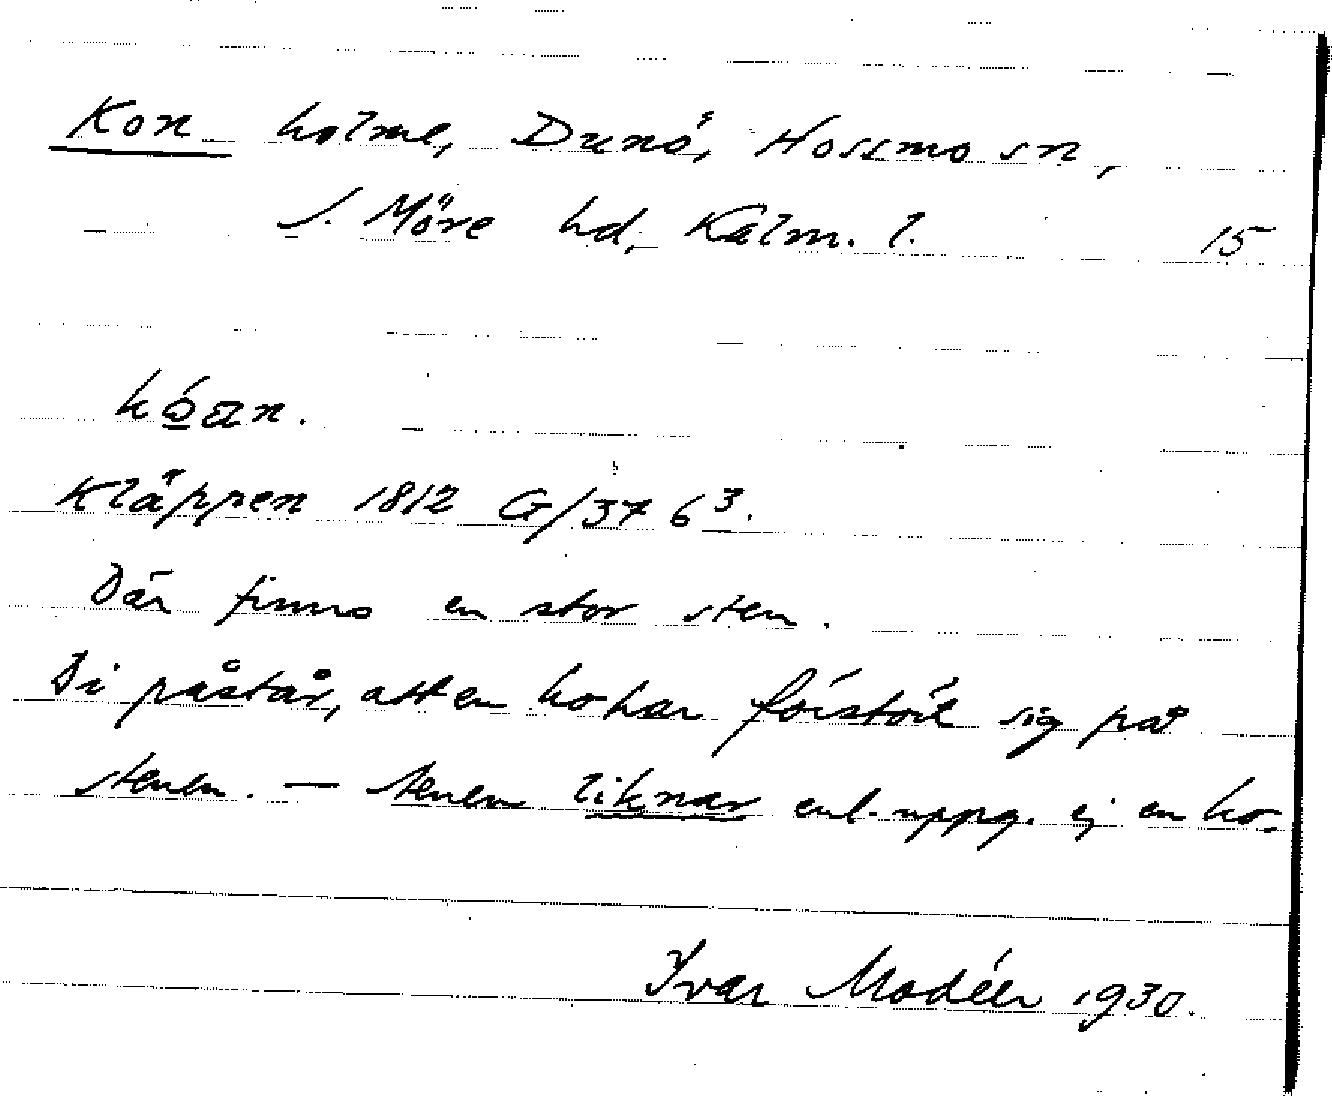 Kon holme, Dunö, Hossmo sn,
S. Möre hd, Kalm. l. 15
kóan.
Kläppen 1812 G/37 6³.
Där finns en stor sten.
Di påstår, att en ko har förstört sig på
stenen. — Stenen liknar enl. uppg. ej en ko.
Ivar Modéer 1930.